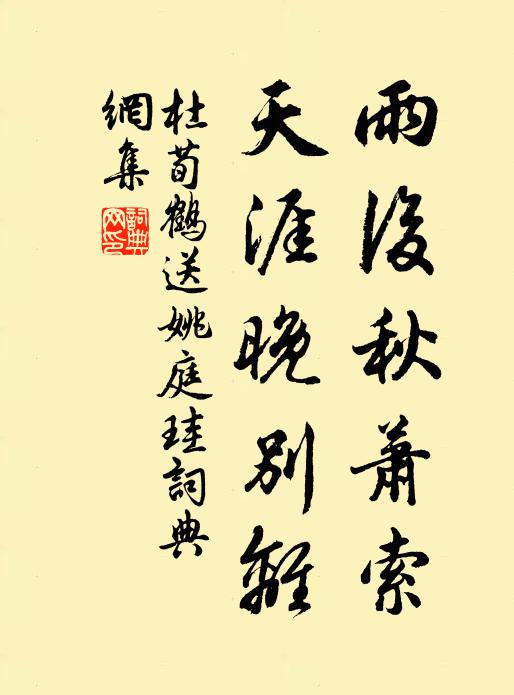 雨後秋蕭索
天涯晚別離
杜荀鶴送姚庭珪詞典
網集
詞典網印